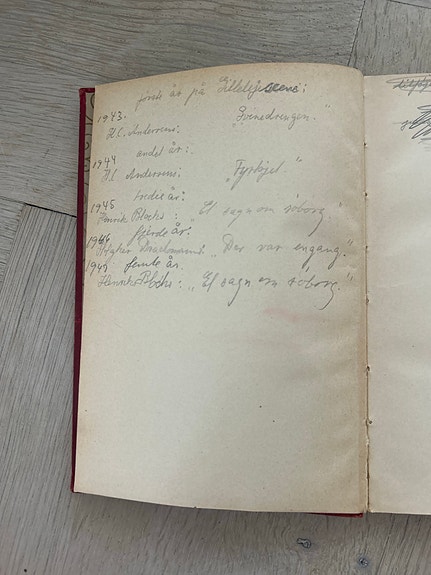 første år på
1943.
H.C. Andersens: „Svinedrengen."
andet år:
1944
H.C. Andersens: „Fyrtøjet"
tredie år:
1945
Henrik Blochs: „Et sagn om søborg."
fjerde år:
1946
Drachmanns: „Der var engang."
1947 femte år.
Henrik Blochs: „Et sagn om søborg."